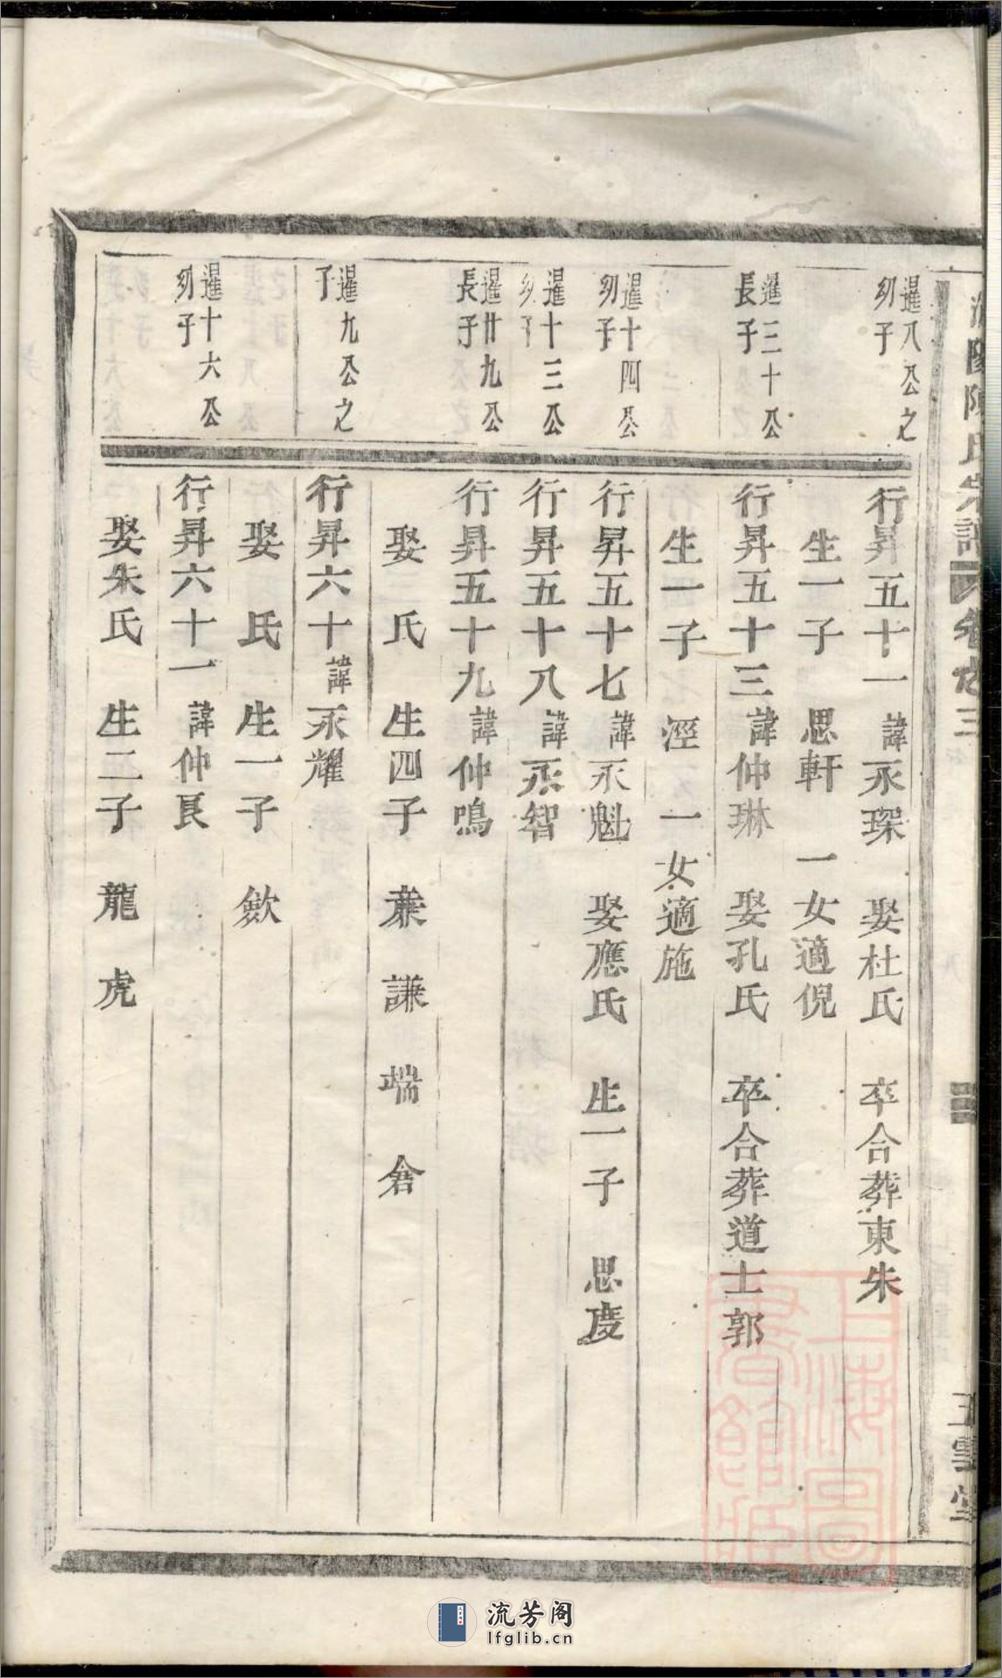 陳氏宗譜 卷之三
五雲堂
暹八公之
幼子
行昇五十一 諱永琛 娶杜氏 卒合葬東朱
生一子 思軒 一女適倪
暹三十公
長子
行昇五十三 諱仲琳 娶孔氏 卒合葬道士郭
生一子 涇 一女適施
暹十四公
幼子
行昇五十七 諱永魁 娶應氏 生一子 思慶
暹十三公
幼子
行昇五十八 諱永智
暹廿九公
長子
行昇五十九 諱仲鳴
娶 氏 生四子 蒹 謙 端 倉
暹九公之
子
行昇六十 諱永耀
娶 氏 生一子 歛
暹十六公
幼子
行昇六十一 諱仲良
娶朱氏 生二子 龍 虎
上海圖書館藏
流芳阁
lfglib.cn